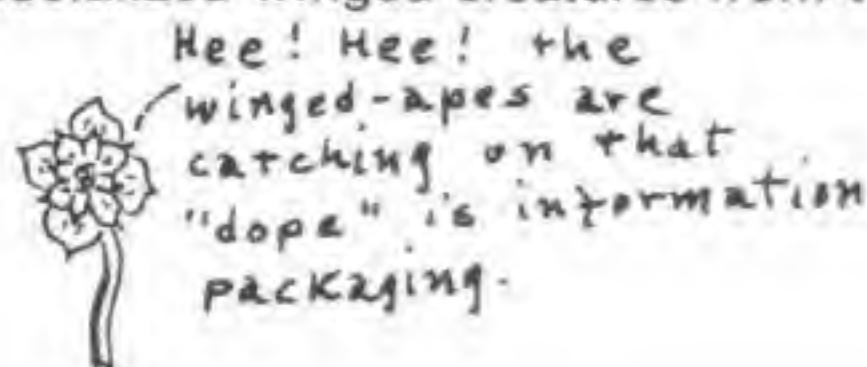 Hee! Hee! the
winged-apes are
catching on that
"dope" is information
packaging.